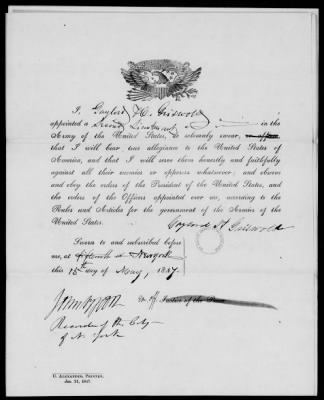 I, Gaylord H. Griswold
appointed a Second Lieutenant in the
Army of the United States, do solemnly swear, or affirm
that I will bear true allegiance to the United States of
America, and that I will serve them honestly and faithfully
against all their enemies or opposers whatsoever; and observe
and obey the orders of the President of the United States, and
the orders of the Officers appointed over me, according to the
Rules and Articles for the government of the Armies of the
United States.
Gaylord H Griswold
Sworn to and subscribed before
me, at New York
this 15th day of May, 1847
Justice of the
Recorder of the City
of N. York
C. ALEXANDER, PRINTER,
Jan. 21, 1847.